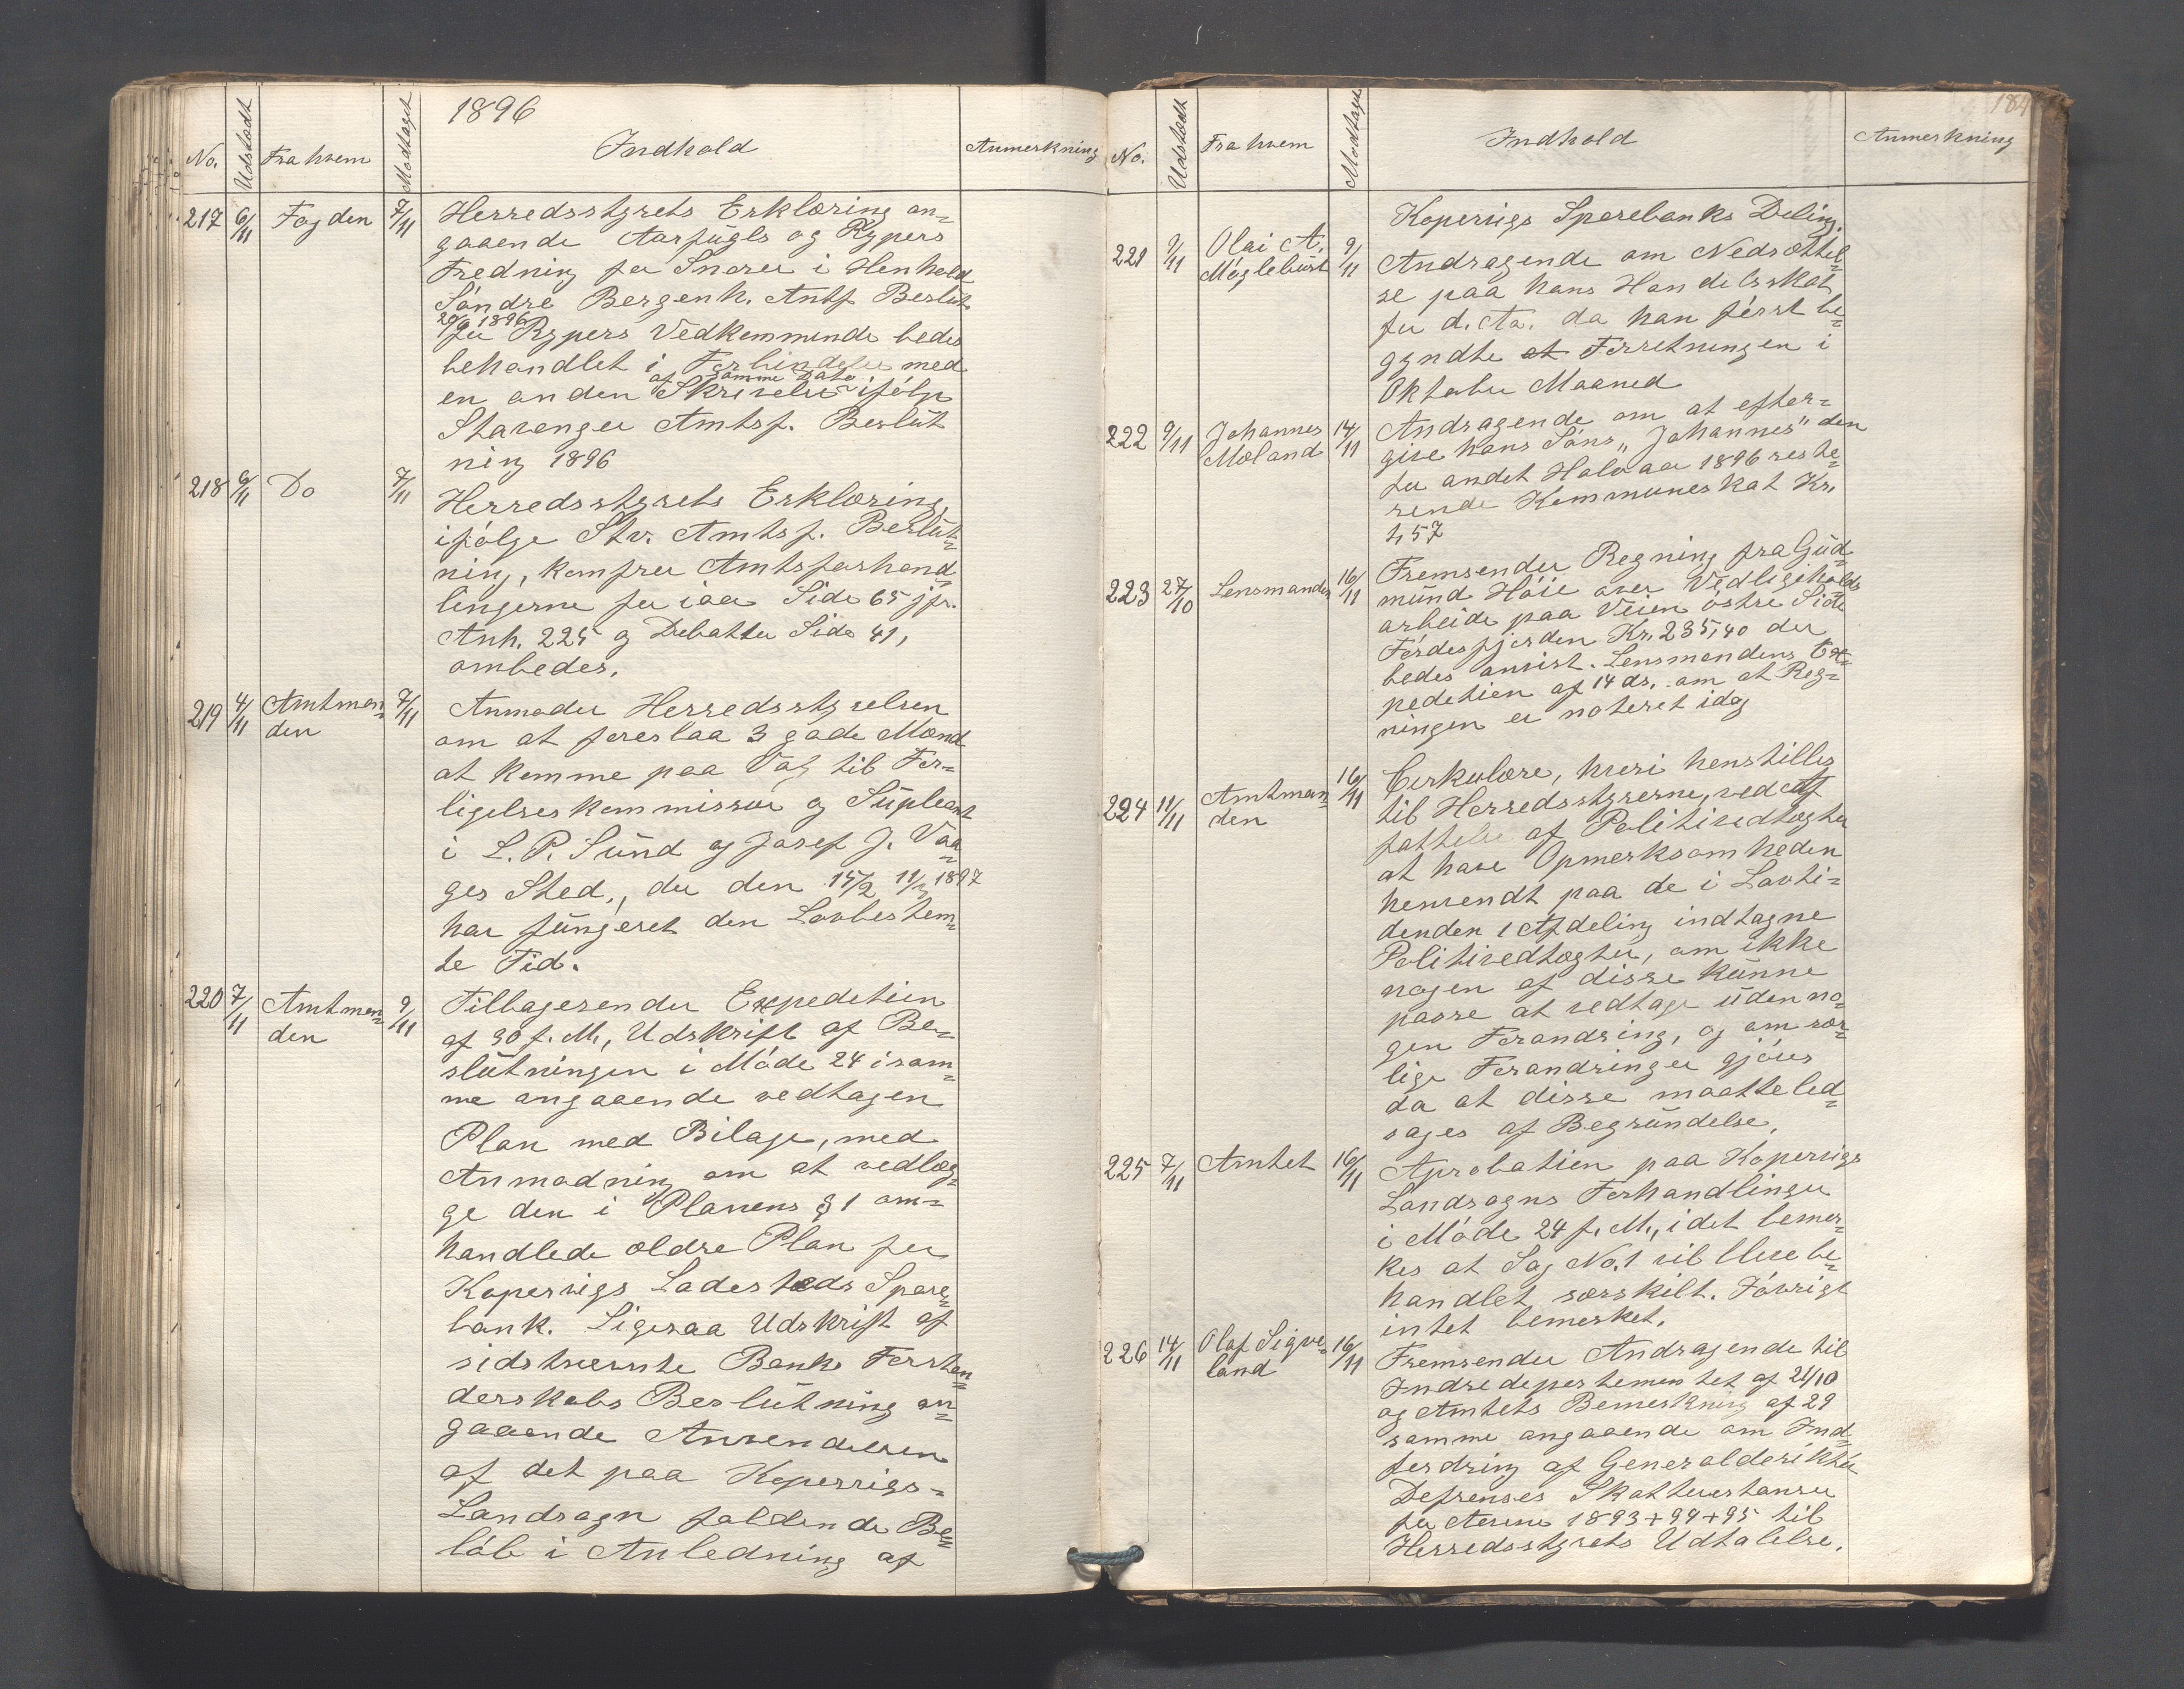 1896
No. Udstedt Fra hvem Modtaget Indhold Anmerkning
217 6/11 Fogden 7/11 Herredsstyrets Erklæring an-
gaaende Aarfugls og Rypers
Fredning for Snarer i Henhold
Søndre Bergenh. Amtsf. Beslut.
20/6 1896
for Rypers Vedkommende bedes
behandlet i Forbindelse med
af samme Dato
en anden Skrivelse ifølge
Stavanger Amtsf. Beslut
ning 1896
218 6/11 Do 7/11 Herredsstyrets Erklæring,
ifølge Stv. Amtsf. Beslut-
ning, komfrer Amtsforhand-
lingerne for iaar Side 65 jfr.
Anh. 225 og Debatter Side 41,
ombedes.
219 4/11 Amtman-
den 7/11 Anmoder Herredsstyrelsen
om at foreslaa 3 gode Mænd
at komme paa Valg til For-
ligelseskommissær og Supleant
i L. P. Sund og Josef J. Vaa-
ges Sted, der den 15/2 11/3 1897
har fungeret den Lovbestem-
te Tid.
220 7/11 Amtman-
den 9/11 Tilbagesender Expedition
af 30 f. M., Udskrift af Be-
slutningen i Møde 24 i sam-
me angaaende vedtagen
Plan med Bilage, med
Anmodning om at vedlæg-
ge den i Planens § 1 om-
handlede ældre Plan for
Kopervigs Ladesteds Spare-
bank. Ligesaa Udskrift af
sidstnævnte Banks Forstan-
derskabs Beslutning an-
gaaende Anvendelsen
af det paa Kopervigs-
Landsogn faldende Be-
løb i Anledning af
184
No. Udstedt Fra hvem Modtaget Indhold Anmerkning
Kopervigs Sparebanks Deling.
221 9/11 Olai A.
Møglebust 9/11 Andragende om Nedsættel-
se paa hans Handelsskat
for d. Aa. da han først be-
gyndte at Forretningen i
Oktober Maaned
222 9/11 Johannes
Mæland 14/11 Andragende om at efter-
give hans Søns „Johannes" den
for andet Halvaar 1896 reste-
rende Kommuneskat Kr.
1,57
223 27/10 Lensmanden 16/11 Fremsender Regning fra Gud-
mund Høie over Vedligeholds
arbeide paa Veien østre Side
Førdesfjorden Kr. 235,40 der
bedes anvist. Lensmandens Ex-
pedition af 14 ds. om at Reg-
ningen er noteret idag
224 11/11 Amtman-
den 16/11 Cirkulære, hvori henstilles
til Herredsstyrerne, ved Af
fattelse af Politivedtægter
at have Opmerksomheden
henvendt paa de i Lovti-
denden 1 Afdeling indtagne
Politivedtægter, om ikke
nogen af disse kunne
passe at vedtage uden no-
gen Forandring, og om sær-
lige Forandringer gjøres
da at disse maatte led-
sages af Begrundelse.
225 7/11 Amtet 16/11 Aprobation paa Kopervigs
Landsogns Forhandlinger
i Møde 24 f. M., idet bemer-
kes at Sag No. 1 vil blive be-
handlet særskilt. Føvrigt
intet bemerket.
226 14/11 Olaf Sigve-
land 16/11 Fremsender Andragende til
Indredepartementet af 21/10
og Amtets Bemerkning af 29
samme angaaende om Ind-
fordring af
Skatterestanser
for Aarene 1893 + 94 + 95 til
Herredsstyrets Udtalelse.